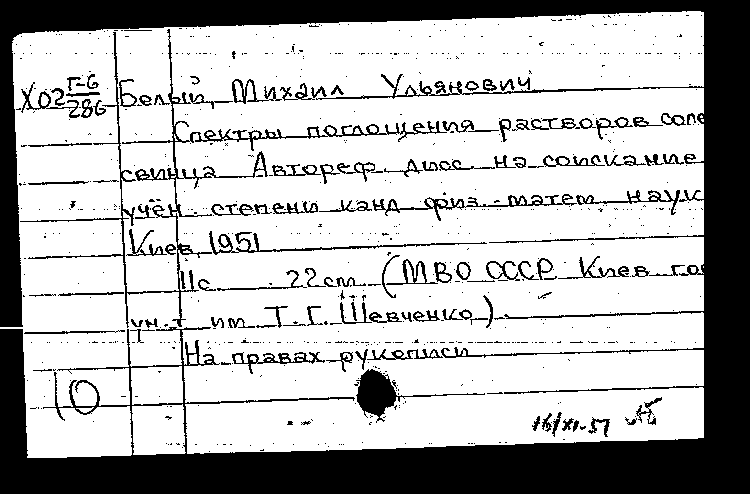 Х02 Г-6/286 Белый, Михаил Ульянович
Спектры поглощения растворов соле
свинца Автореф. дисс. на соискание
учён. степени канд физ.-матем. наук
Киев, 1951
11с. 22см (МВО СССР Киев гос
ун-т им Т.Г. Шевченко).
На правах рукописи
10
16/XI-51